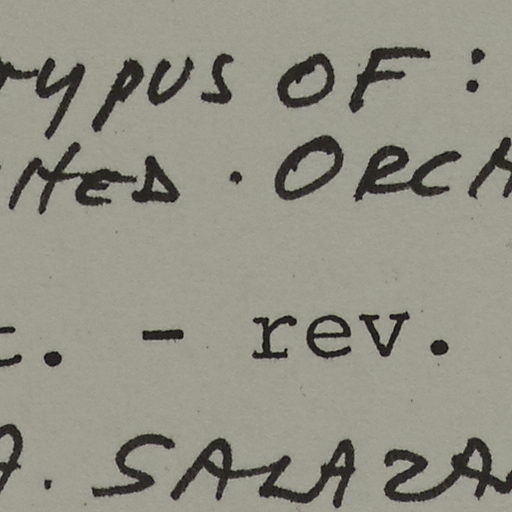 TYPUS OF :
HED . ORCH
t. - rev.
A. SALAZA